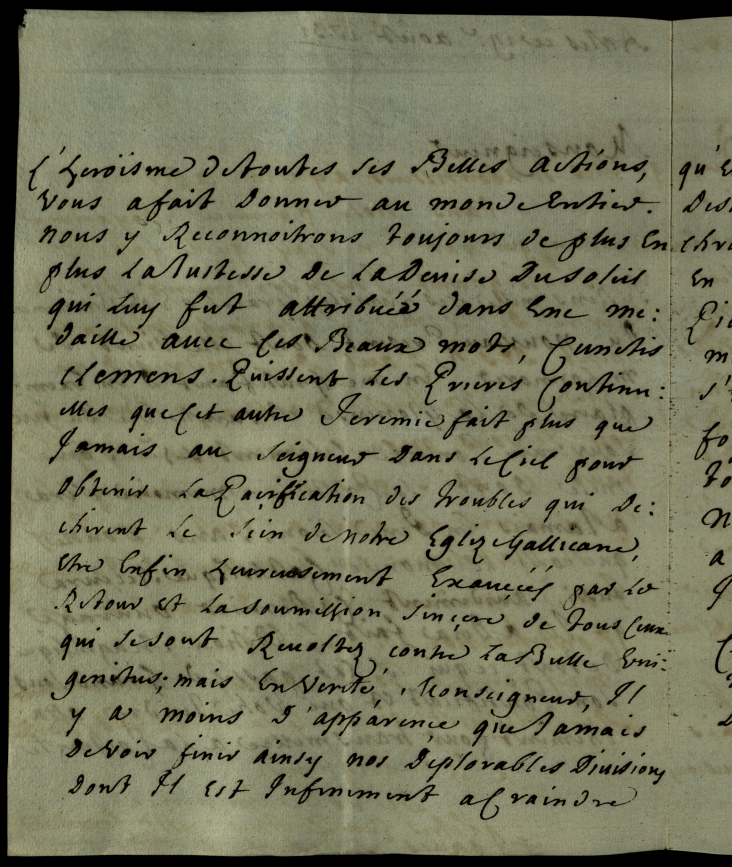 L'heröisme detoutes ses Belles actions,
vous afait donner au monde Entier.
nous y Reconnoitrons toujours de plus En
plus LaJustesse De LaDevise DuSoleil
qui Luy fut attribuéé dans Une me:
daille avec Ces Beaux mots, Cunctis
Clemens. Puissent Les Prieres Continu:
elles queCet autre Jeremie fait plus que
Jamais au Seigneur Dans LeCiel pour
obtenir LaPacification des troubles qui De:
chirent Le Sein denotre EglizeGallicane,
etre Enfin heureusement Exaucéés par Le
Retour et Lasoumission Sincere de tous Ceux
qui Sesont Revoltez contre LaBulle Uni:
genitus; mais EnVerité, Monseigneur, Il
y a moins d'apparence queJamais
DeVoir finir ainsy nos Deplorables Divisions
Dont Il Est Infiniment aCraindre
qu'
en
m
s'
fo
n
a